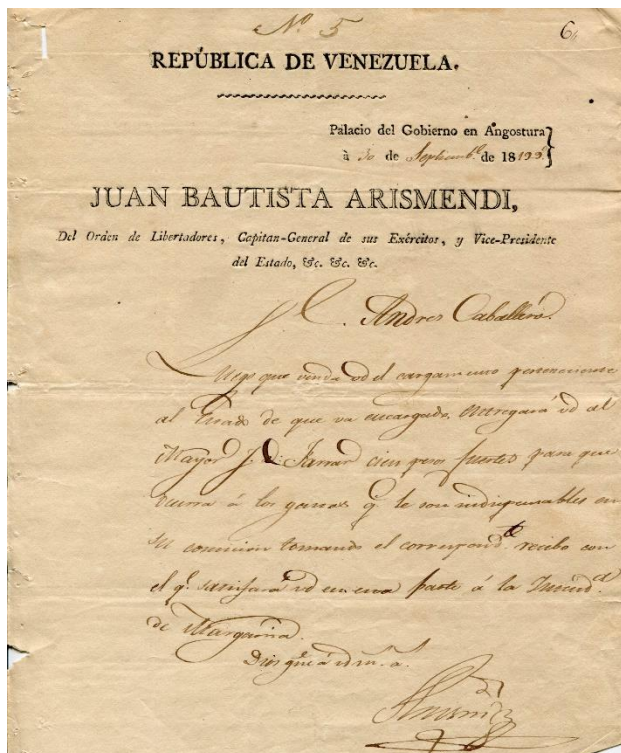 Nº 5
6
REPÚBLICA DE VENEZUELA.
Palacio del Gobierno en Angostura
à 30 de Septiembe de 1819
JUAN BAUTISTA ARISMENDI,
Del Orden de Libertadores, Capitan-General de sus Exércitos, y Vice-Presidente
del Estado, &c. &c. &c.
Andres Caballero.
Luego que venda vd el cargamento perteneciente
al Estado de que va encargado, entregará vd al
Mayor J. cien pesos fuertes para que
ocurra á los gastos q. le son indispensables en
su comision tomando el correspondte. recibo con
el q. satisfará vd en esa parte á la
de Margarita.
Dios gue á vd m. a.
Arismendi